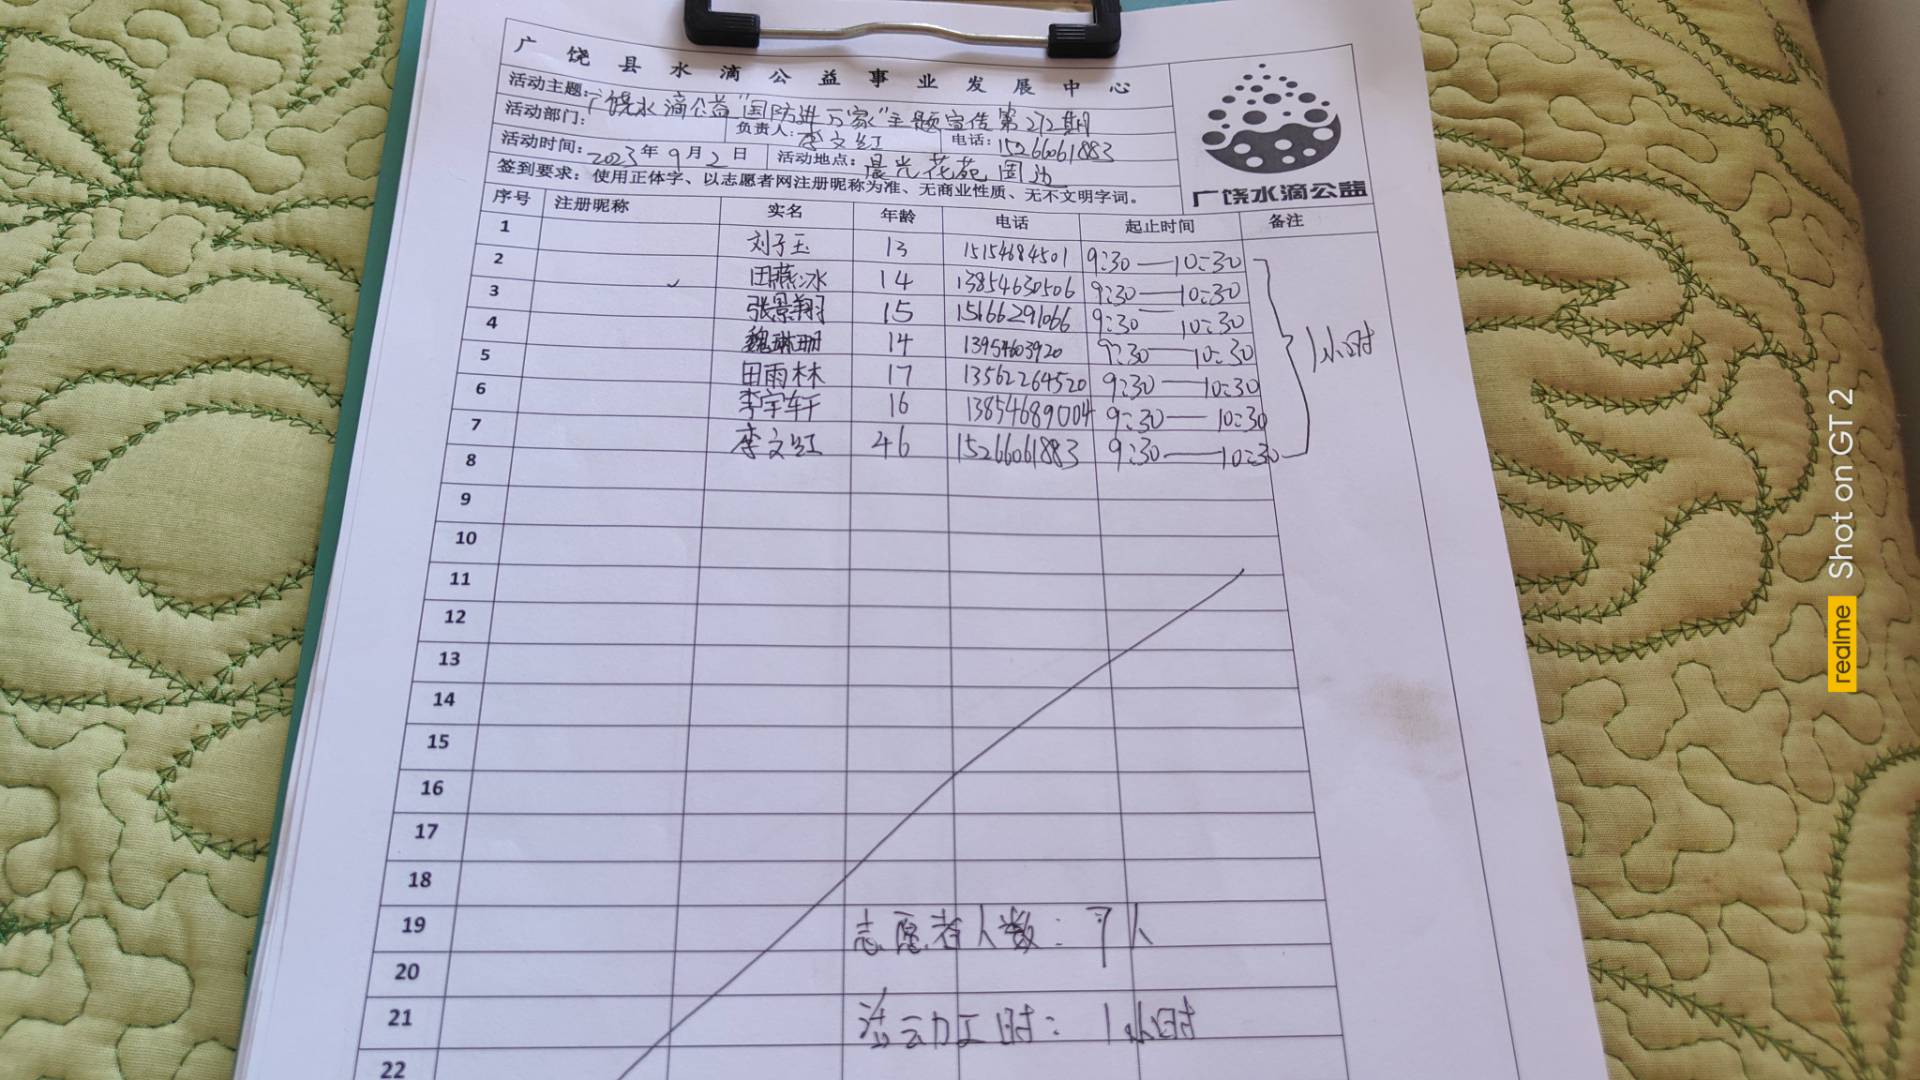 广饶县水滴公益事业发展中心
活动主题:广饶水滴公益"国防进万家"主题宣传第272期
活动部门: 负责人:李文红 电话:15266061883
活动时间:2023年9月2日 活动地点:晨光花苑周边
签到要求:使用正体字、以志愿者网注册昵称为准、无商业性质、无不文明字词。
广饶水滴公益
序号 注册昵称 实名 年龄 电话 起止时间 备注
1 刘子玉 13 15154684501 9:30—10:30
2 田燕冰 14 13854630506 9:30—10:30
3 张景翔 15 15166291066 9:30 10:30
4 魏琳珊 14 13954603920 9:30—10:30
5 田雨林 17 13562264520 9:30—10:30
6 李宇轩 16 13854689004 9:30—10:30
7 李文红 46 15266061883 9:30—10:30
1小时
8
9
10
11
12
13
14
15
16
17
18
19 志愿者人数:7人
20
21 活动工时:1小时
22
realme Shot on GT 2